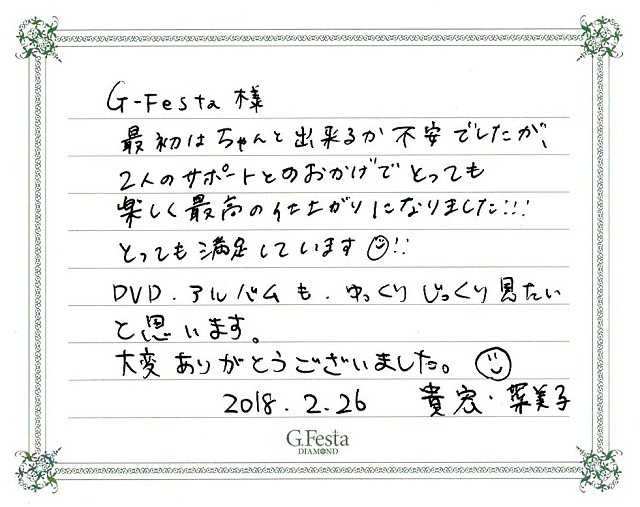 G-Festa 様
最初はちゃんと出来るか不安でしたが、
2人のサポートとのおかげでとっても
楽しく最高の仕上がりになりました!!!
とっても満足しています!!
DVD.アルバムも.ゆっくりじっくり見たい
と思います。
大変ありがとうございました。
2018.2.26 貴宏・菜美子
G.Festa
DIAMOND